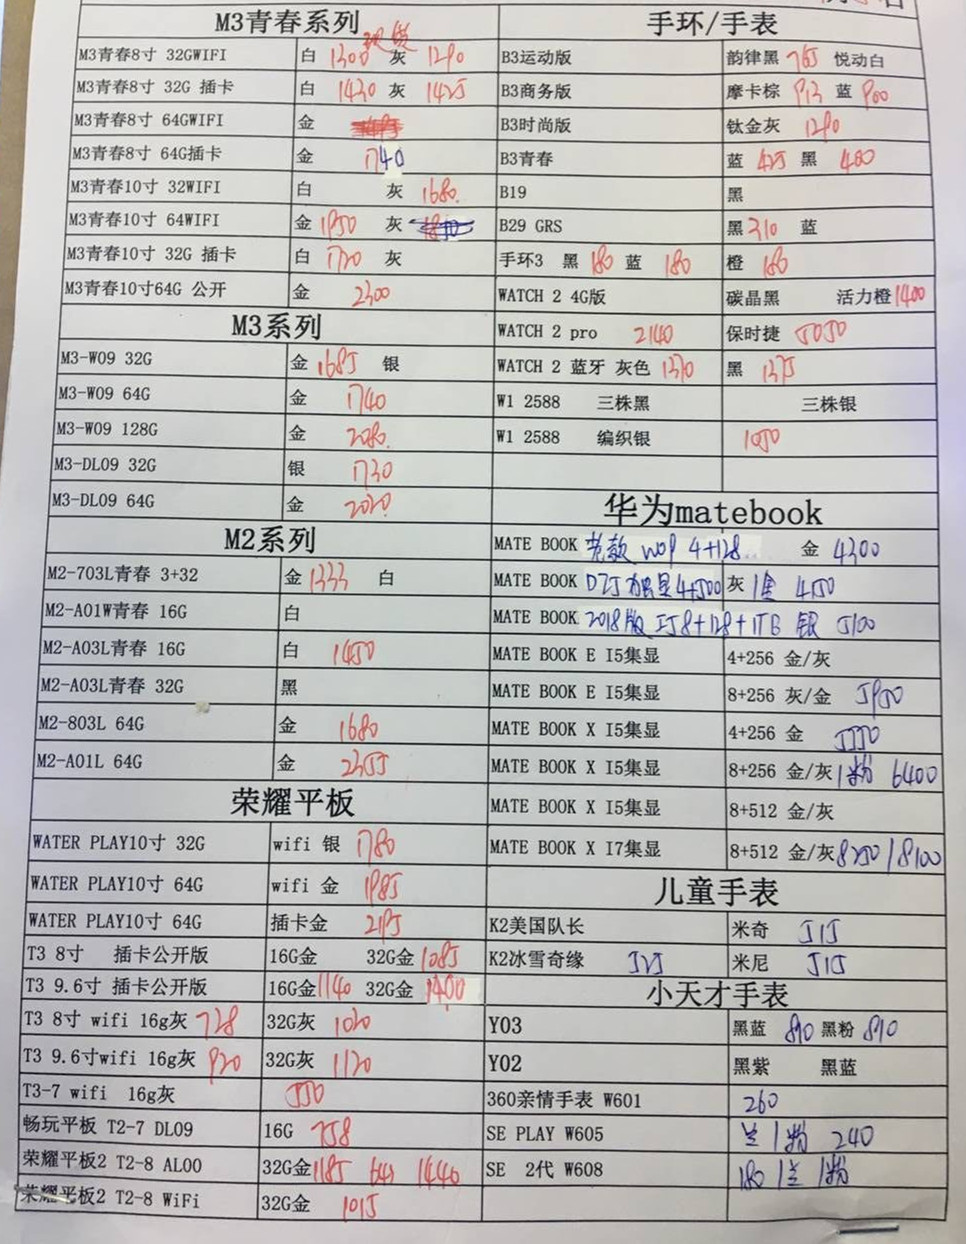 M3青春系列
现货
M3青春8寸 32GWIFI 白 1300 灰 1290
M3青春8寸 32G 插卡 白 1430 灰 1425
M3青春8寸 64GWIFI 金
M3青春8寸 64G插卡 金 1740
M3青春10寸 32WIFI 白 灰 1680.
M3青春10寸 64WIFI 金 1950 灰
M3青春10寸 32G 插卡 白 1720 灰
M3青春10寸64G 公开 金 2300
M3系列
M3-W09 32G 金 1685 银
M3-W09 64G 金 1740
M3-W09 128G 金 2080.
M3-DL09 32G 银 1730
M3-DL09 64G 金 2020
M2系列
M2-703L青春 3+32 金 1333 白
M2-A01W青春 16G 白
M2-A03L青春 16G 白 1450
M2-A03L青春 32G 黑
M2-803L 64G 金 1680
M2-A01L 64G 金 2355
荣耀平板
WATER PLAY10寸 32G wifi 银 1780
WATER PLAY10寸 64G wifi 金 1985
WATER PLAY10寸 64G 插卡金 2195
T3 8寸 插卡公开版 16G金 32G金 1085
T3 9.6寸 插卡公开版 16G金 1140 32G金 1400
T3 8寸 wifi 16g灰 728 32G灰 1020
T3 9.6寸wifi 16g灰 920 32G灰 1120
T3-7 wifi 16g灰 550
畅玩平板 T2-7 DL09 16G 758
荣耀平板2 T2-8 AL00 32G金 1185 64 1440
荣耀平板2 T2-8 WiFi 32G金 1015
手环/手表
B3运动版 韵律黑 765 悦动白
B3商务版 摩卡棕 913 蓝 900
B3时尚版 钛金灰 1290
B3青春 蓝 425 黑 400
B19 黑
B29 GRS 黑 310 蓝
手环3 黑 180 蓝 180 橙 160
WATCH 2 4G版 碳晶黑 活力橙 1400
WATCH 2 pro 2140 保时捷 5050
WATCH 2 蓝牙 灰色 1370 黑 1375
W1 2588 三株黑 三株银
W1 2588 编织银 1050
华为matebook
MATE BOOK 老款 W09 4+128.. 金 4300
MATE BOOK D 独显4+500 灰 1金 4150
MATE BOOK 2018版 I5 8+128+1TB 银 5100
MATE BOOK E I5集显 4+256 金/灰
MATE BOOK E I5集显 8+256 灰/金 5950
MATE BOOK X I5集显 4+256 金 5550
MATE BOOK X I5集显 8+256 金/灰 1粉 6400
MATE BOOK X I5集显 8+512 金/灰
MATE BOOK X I7集显 8+512 金/灰 8250/8100
儿童手表
K2美国队长 米奇 515
K2冰雪奇缘 525 米尼 515
小天才手表
Y03 黑蓝 890 黑粉 890
Y02 黑紫 黑蓝
360亲情手表 W601 260
SE PLAY W605 兰 1粉 240
SE 2代 W608 180 1兰 1粉